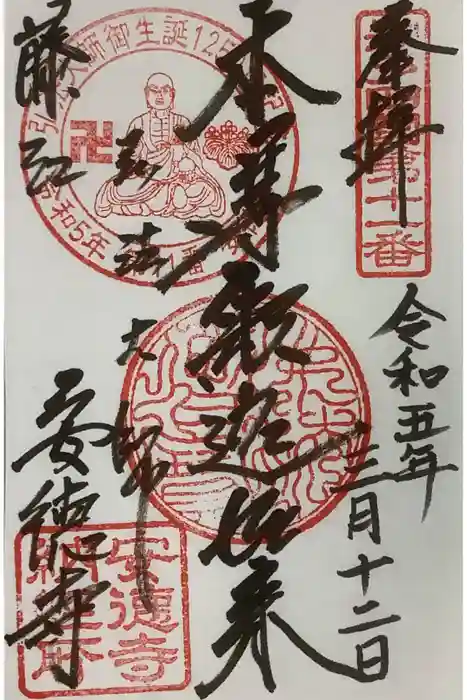 奉拝
四国第十一番
令和五年
三月十二日
本尊釈迦如来
弘法大師
大師御生誕12
和5年
藤江
安徳寺
安徳寺
納経所